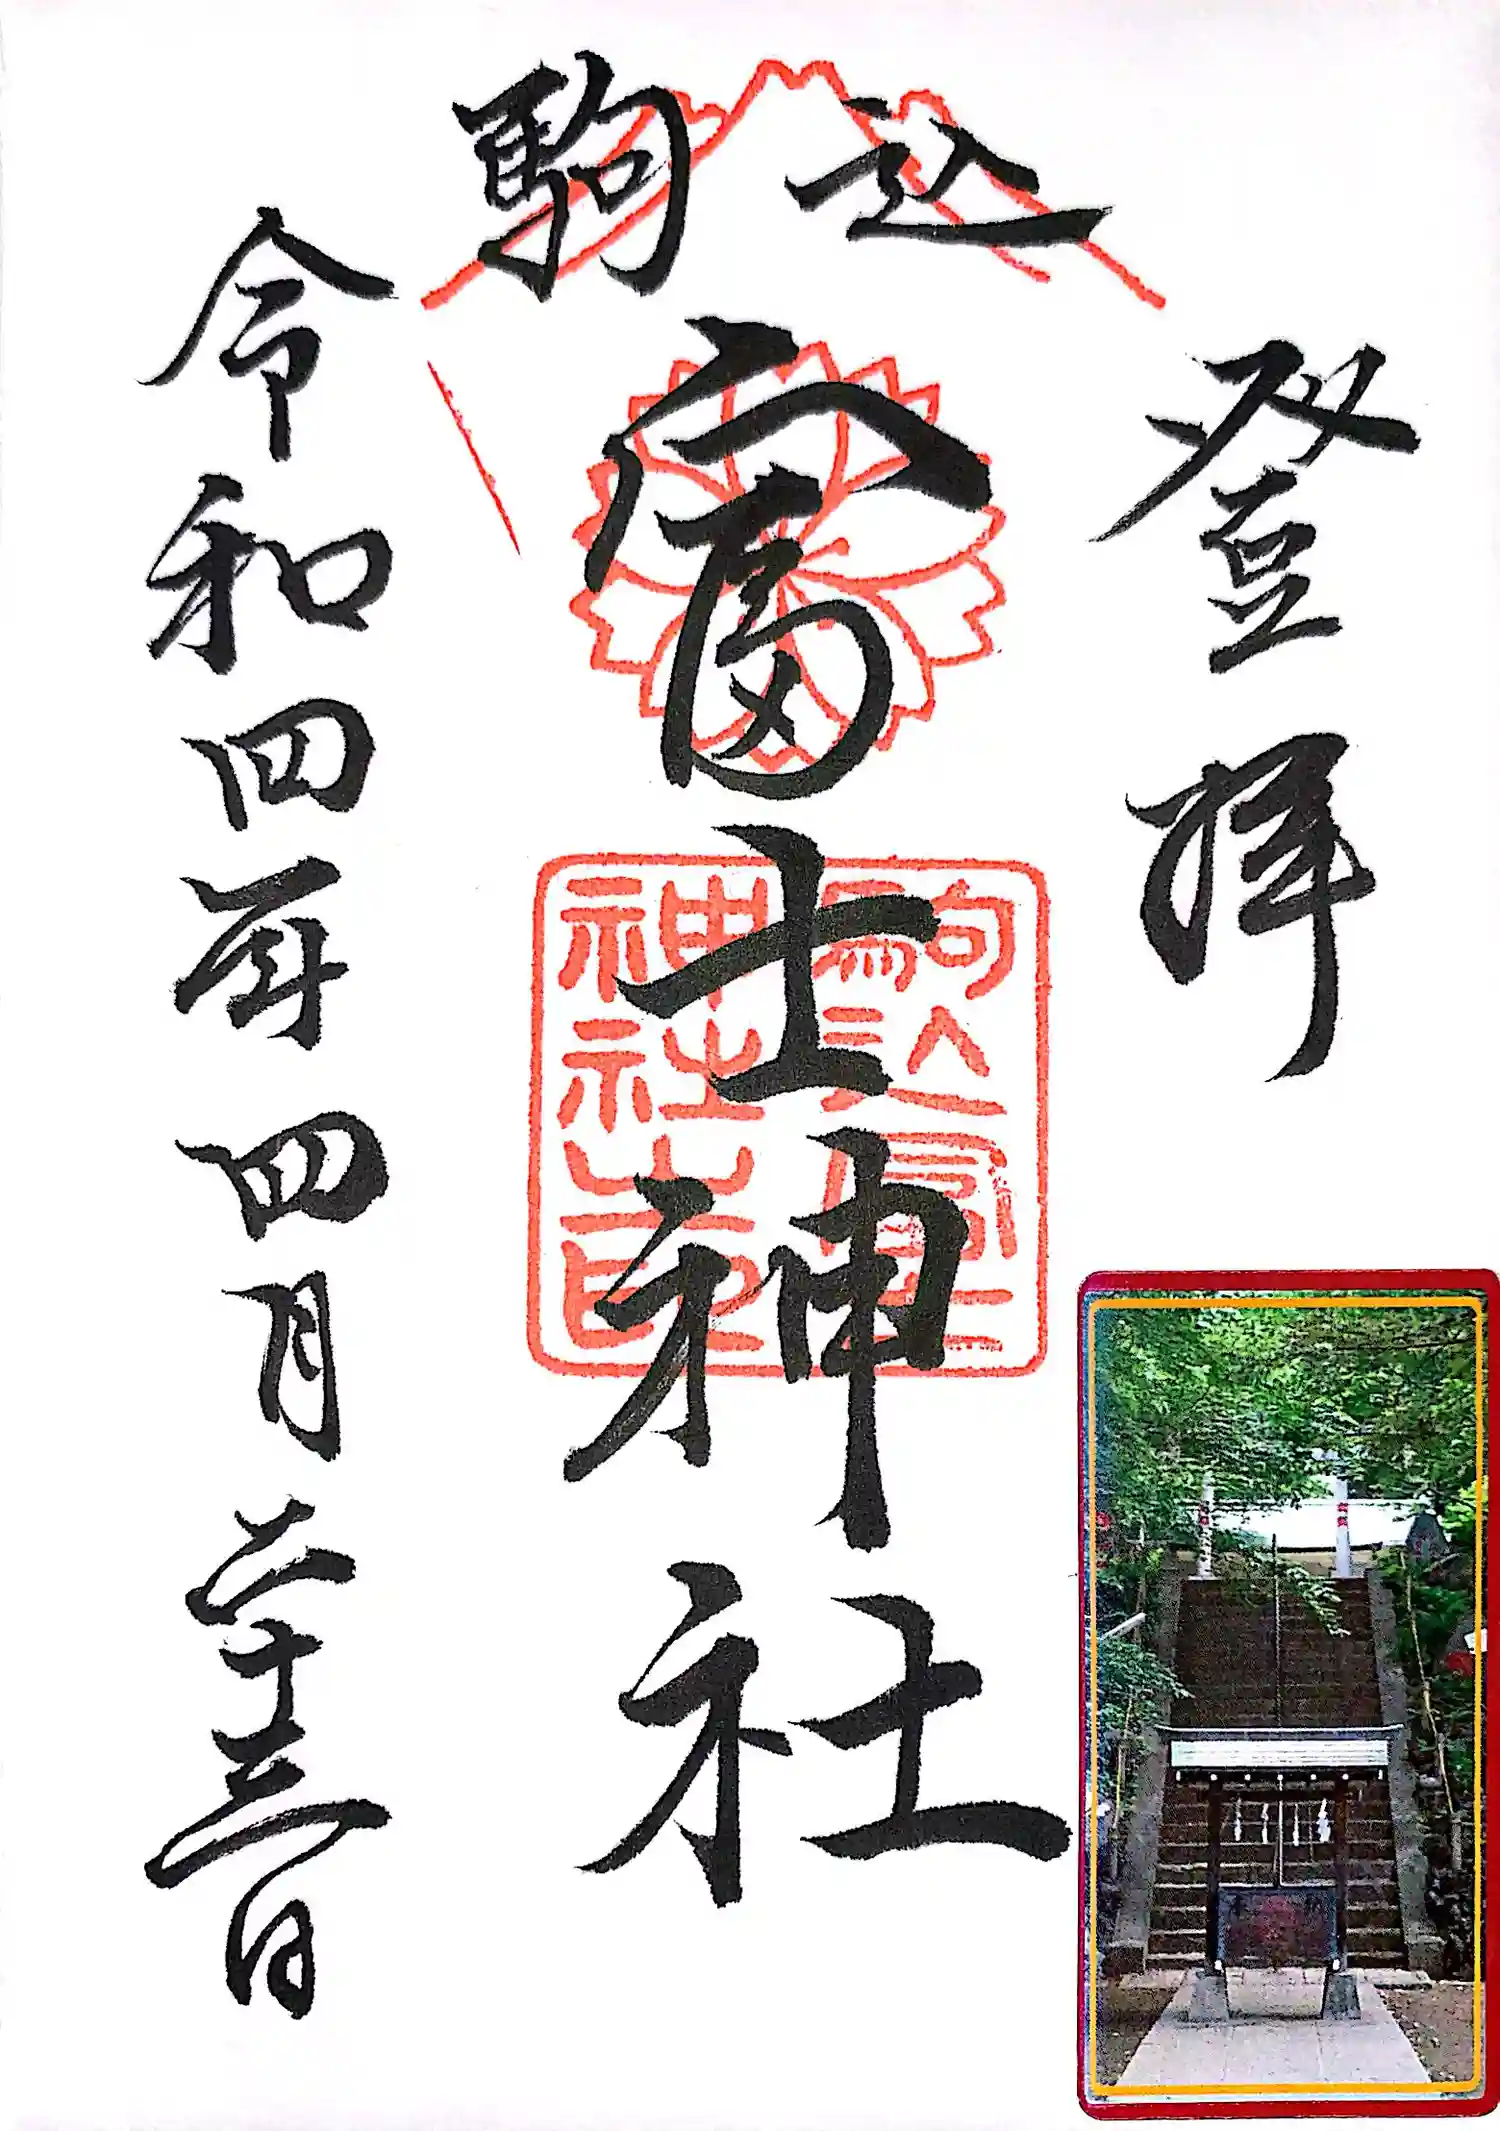 登拝
駒込
富士神社
駒込富士
神社璽
令和四年四月二十三日